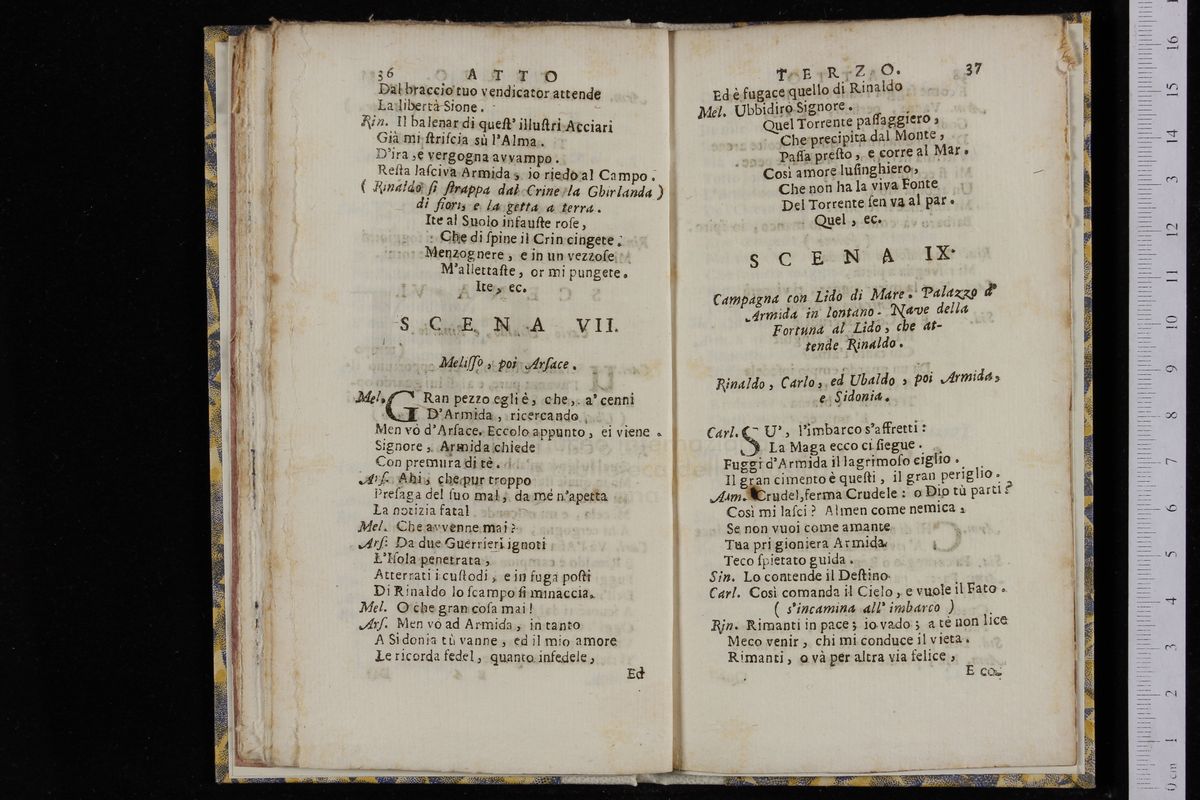 36 ATTO
Dal braccio tuo vendicator attende
La libertà Sione.
Rin. Il balenar di queſt' illuſtri Acciari
Già mi ſtriſcia sù l'Alma.
D'ira, e vergogna avvampo.
Reſta laſciva Armida, io riedo al Campo.
( Rinaldo ſi ſtrappa dal Crine la Ghirlanda )
di fiori, e la getta a terra.
Ite al Suolo infauſte roſe,
Che di ſpine il Crin cingete.
Menzognere, e in un vezzoſe
M'allettaſte, or mi pungete.
Ite, ec.
SCENA VII.
Meliſſo, poi Arſace.
Mel. GRan pezzo egli è, che, a' cenni
D'Armida, ricercando
Men vò d'Arſace. Eccolo appunto, ei viene.
Signore, Armida chiede
Con premura di tè.
Arſ. Ahi, che pur troppo
Preſaga del ſuo mal, da mé n'aſpetta
La notizia fatal
Mel. Che avvenne mai?
Arſ. Da due Guerrieri ignoti
L'Iſola penetrata,
Atterrati i cuſtodi, e in fuga poſti
Di Rinaldo lo ſcampo ſi minaccia.
Mel. O che gran coſa mai!
Arſ. Men vò ad Armida, in tanto
A Sidonia tù vanne, ed il mio amore
Le ricorda fedel, quanto infedele,
Ed
TERZO. 37
Ed è fugace quello di Rinaldo
Mel. Ubbidirò Signore.
Quel Torrente paſſaggiero,
Che precipita dal Monte,
Paſſa preſto, e corre al Mar.
Così amore luſinghiero,
Che non ha la viva Fonte
Del Torrente ſen va al par.
Quel, ec.
SCENA IX.
Campagna con Lido di Mare. Palazzo d'
Armida in lontano. Nave della
Fortuna al Lido, che at-
tende Rinaldo.
Rinaldo, Carlo, ed Ubaldo, poi Armida,
e Sidonia.
Carl. SU', l'imbarco s'affretti:
La Maga ecco ci ſiegue.
Fuggi d'Armida il lagrimoſo ciglio.
Il gran cimento è queſti, il gran periglio.
Arm. Crudel, ferma Crudele: o Dio tù parti?
Così mi laſci? Almen come nemica,
Se non vuoi come amante
Tua pri gioniera Armida
Teco ſpietato guida.
Sin. Lo contende il Deſtino.
Carl. Così comanda il Cielo, e vuole il Fato.
( s'incamina all' imbarco )
Rin. Rimanti in pace; io vado; a tè non lice
Meco venir, chi mi conduce il vieta.
Rimanti, o và per altra via felice,
E co-